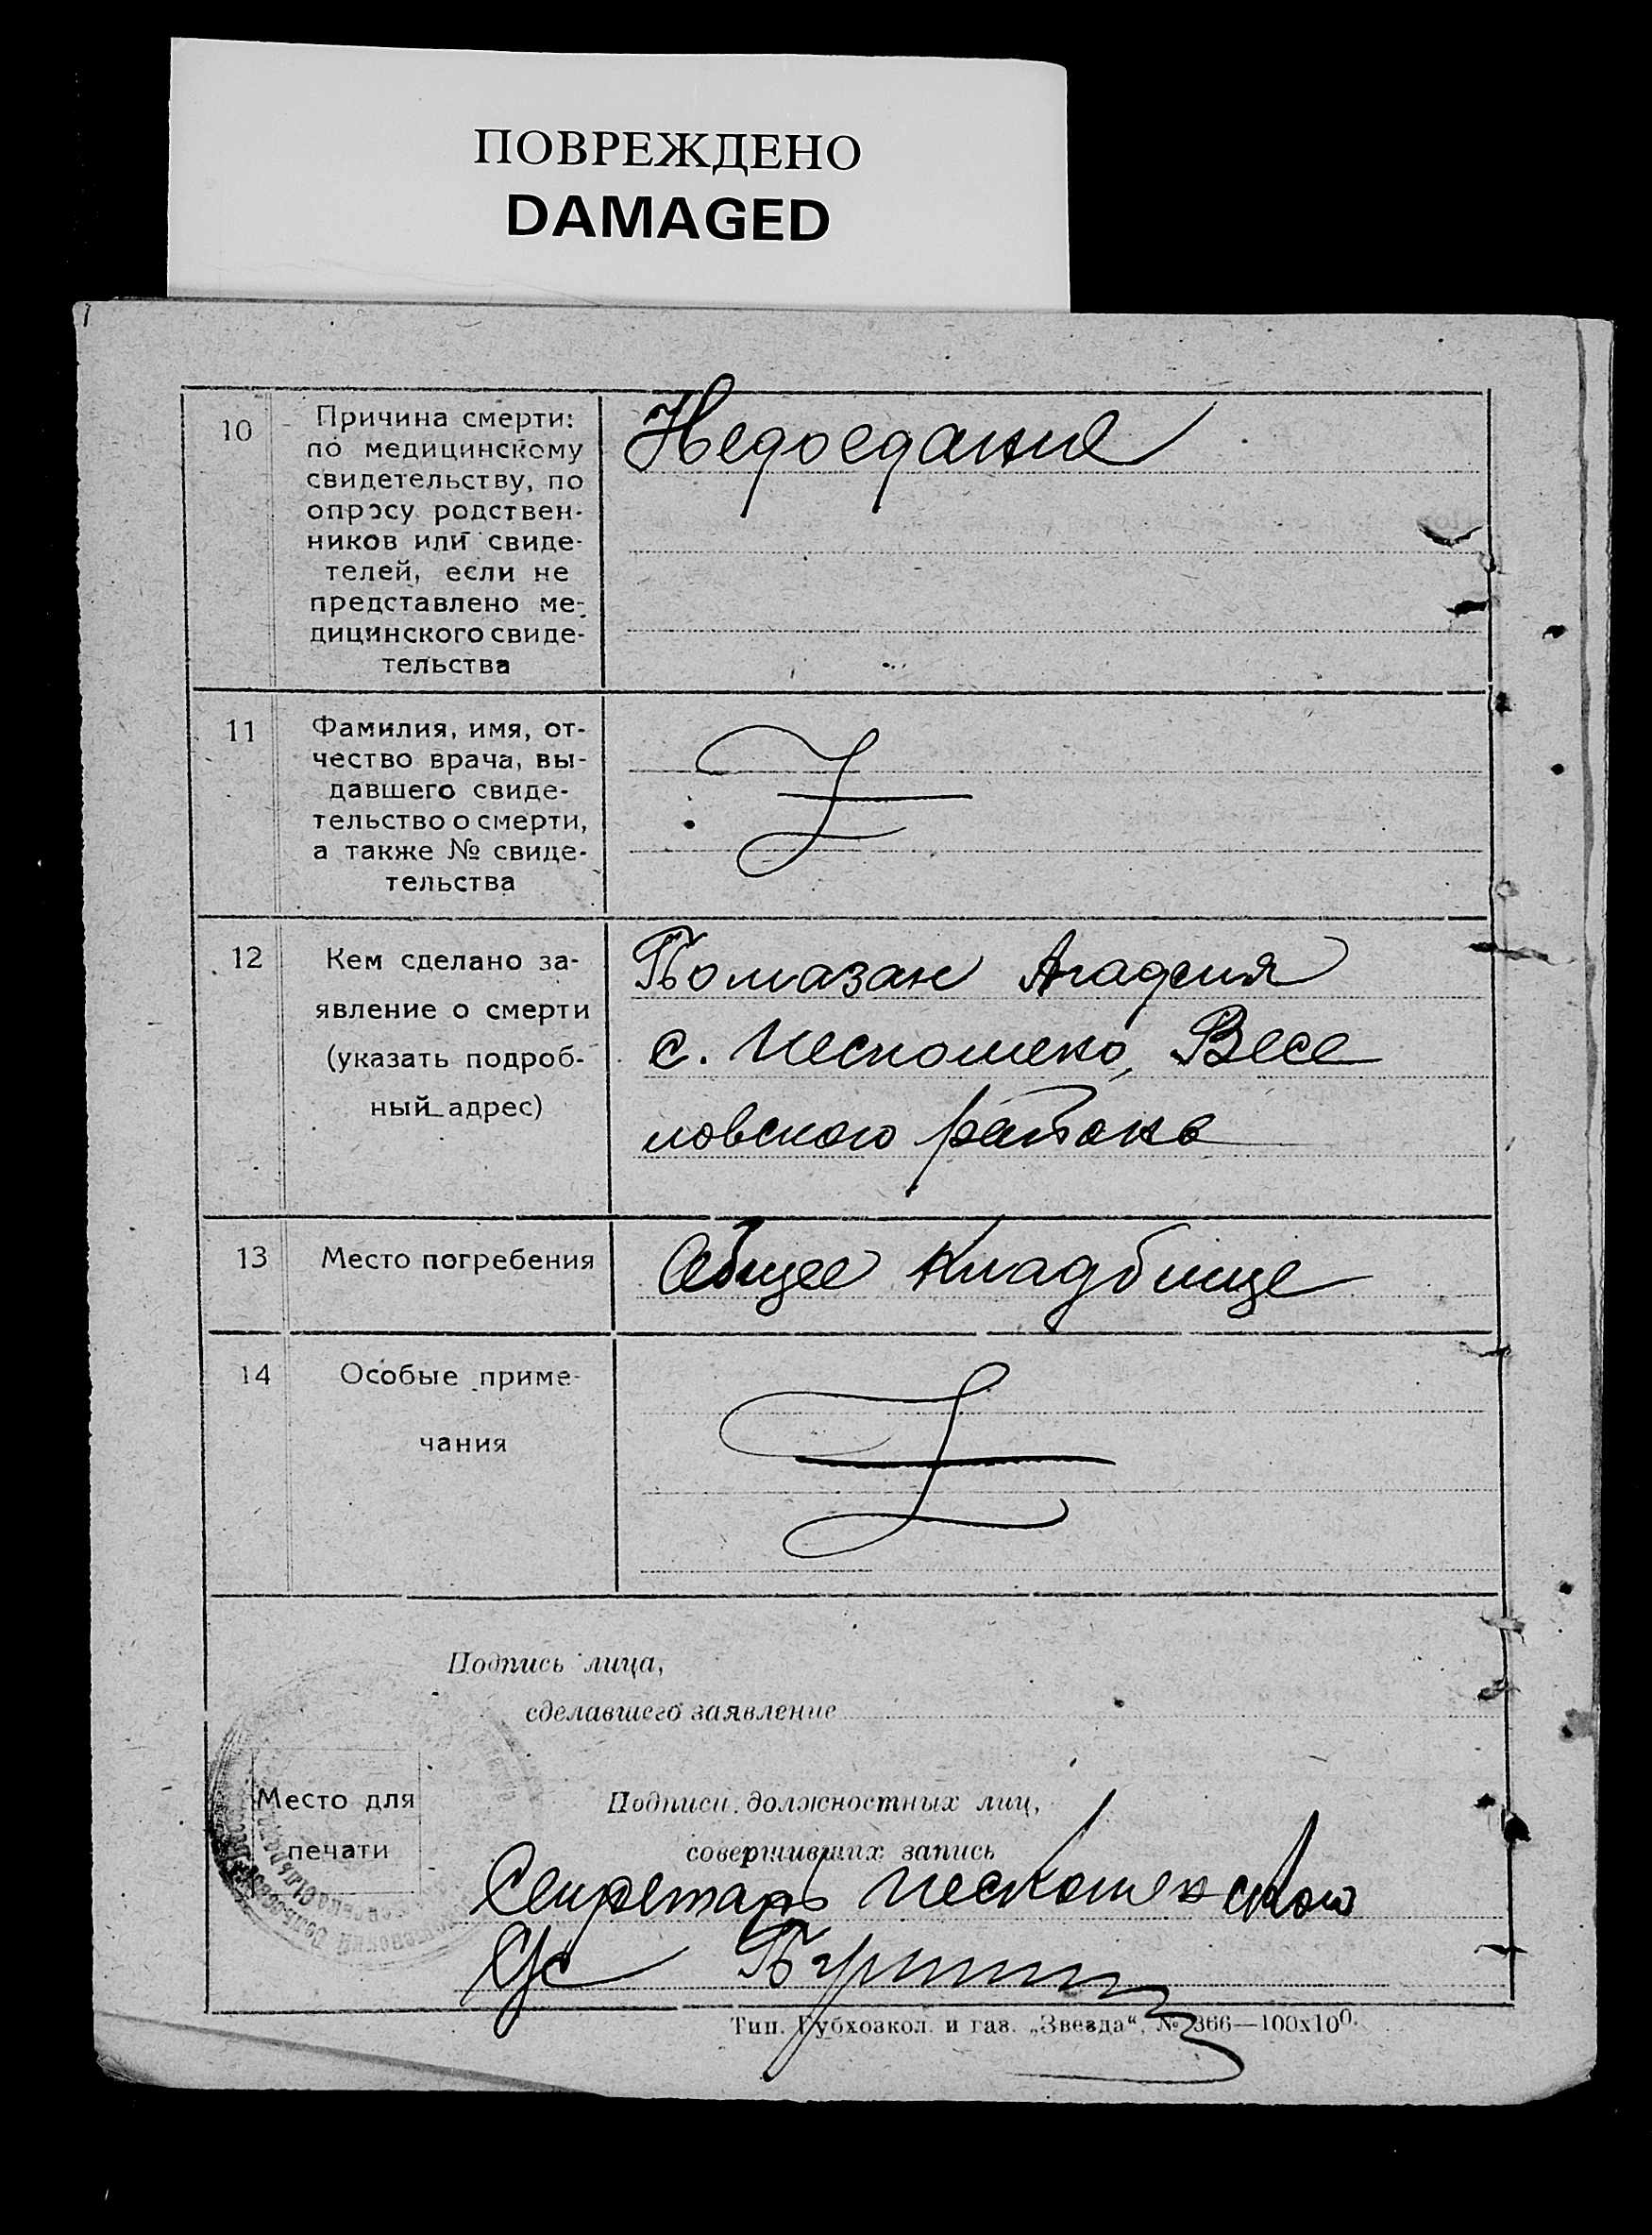 ПОВРЕЖДЕНО
DAMAGED
10
Причина смерти:
по медицинскому
свидетельству, по
опросу родствен-
ников или свиде-
телей, если не
представлено ме-
дицинского свиде-
тельства
Недоедание
11
Фамилия, имя, от-
чество врача, вы-
давшего свиде-
тельство о смерти,
а также № свиде-
тельства
12
Кем сделано за-
явление о смерти
(указать подроб-
ный адрес)
Помазан
с. Весе
ловского района
13
Место погребения
Общее кладбище
14
Особые приме-
чания
Подпись лица,
сделавшего заявление
Место для
печати
Подписи должностных лиц,
совершивших запись
Секретарь
с/с
Тип. Губхозкол. и газ. „Звезда“, № 366—100х100.